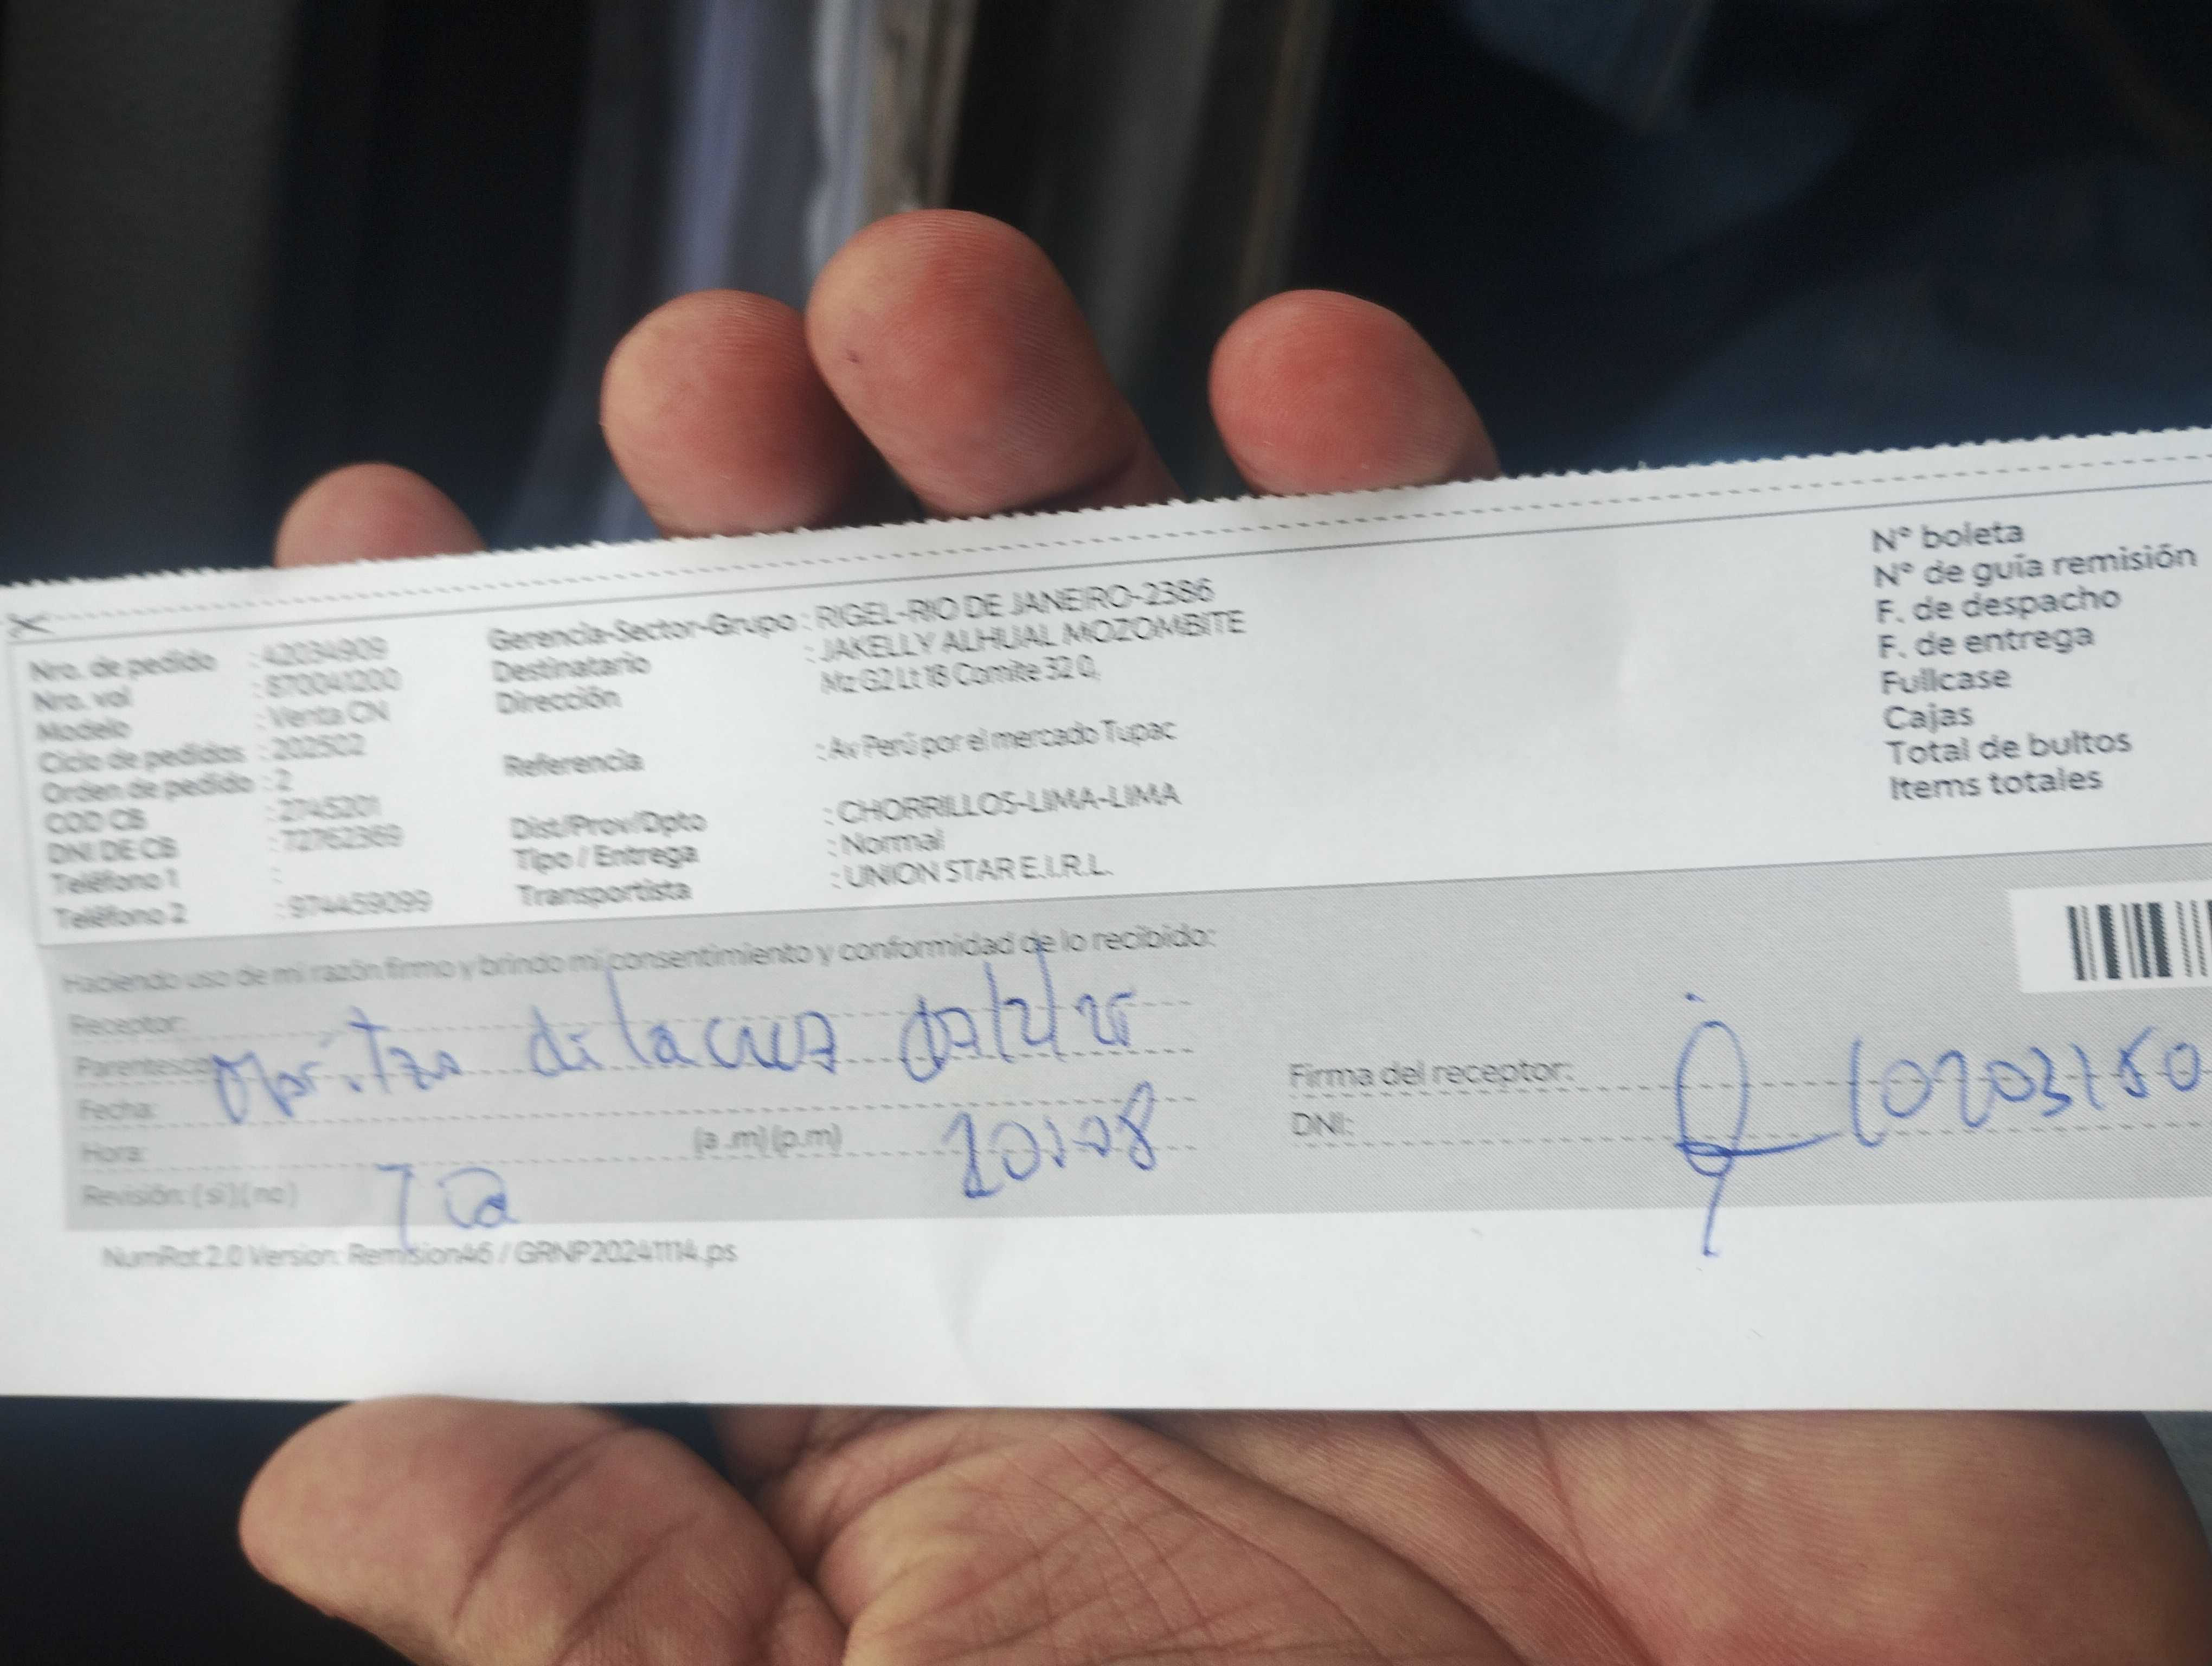 Nro. de pedido : 42034909
Nro. val : 870041200
Modelo : Venta CN
Ciclo de pedidos : 202502
Orden de pedido : 2
COD CB : 2745201
DNI DE CB : 72762369
Teléfono 1 :
Teléfono 2 : 974459099
Gerencia-Sector-Grupo : RIGEL-RIO DE JANEIRO-2386
Destinatario : JAKELLY ALHUAL MOZOMBITE
Dirección Mz G2 Lt 18 Comite 32 0,
Referencia : Av Perú por el mercado Tupac
Dist/Prov/Dpto : CHORRILLOS-LIMA-LIMA
Tipo / Entrega : Normal
Transportista : UNION STAR E.I.R.L.
N° boleta
N° de guía remisión
F. de despacho
F. de entrega
Fullcase
Cajas
Total de bultos
Items totales
Haciendo uso de mi razón firmo y brindo mi consentimiento y conformidad de lo recibido:
Receptor:
Parentesco
Maritza de la cruz
Fecha:
Hora: (a .m) (p.m)
Revisión: (si) (no) Tia
Firma del receptor:
DNI: 10203150
NumRot 2.0 Version: Remision46 / GRNP20241114.ps